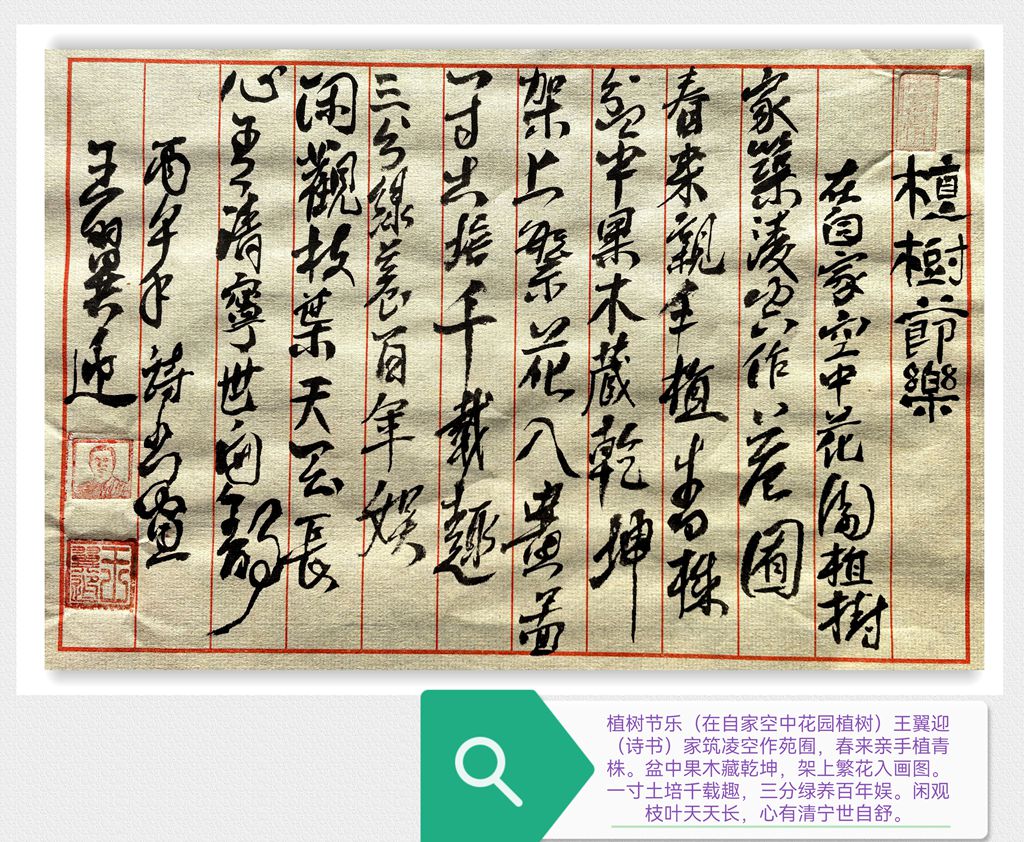 植樹節樂
在自家空中花園植樹
家築淩空作苑囿
春来親手植青株
盆中果木藏乾坤
架上繁花入畫圖
一寸土培千載趣
三分緑養百年娱
闲觀枝葉天天長
心有清寧世自舒
丙午年 詩書畫
王翼迎
植树节乐（在自家空中花园植树）王翼迎
（诗书）家筑凌空作苑囿，春来亲手植青
株。盆中果木藏乾坤，架上繁花入画图。
一寸土培千载趣，三分绿养百年娱。闲观
枝叶天天长，心有清宁世自舒。